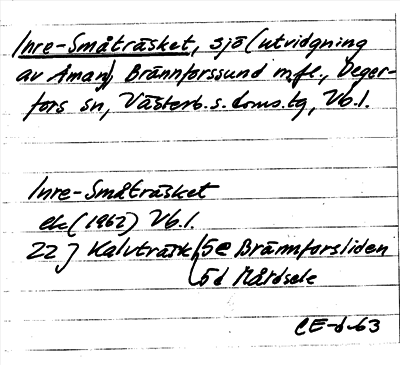 Inre-Småträsket, sjö (utvidgning
av Åman) Brännforssund m.fl., Deger-
fors sn, Västerb. s. doms. tg, Vb.l.
Inre-Småträsket
ek (1962) Vb.l.
22 J Kalvträsk 5e Brännforsliden
5d Mårdsele
CE-6-63